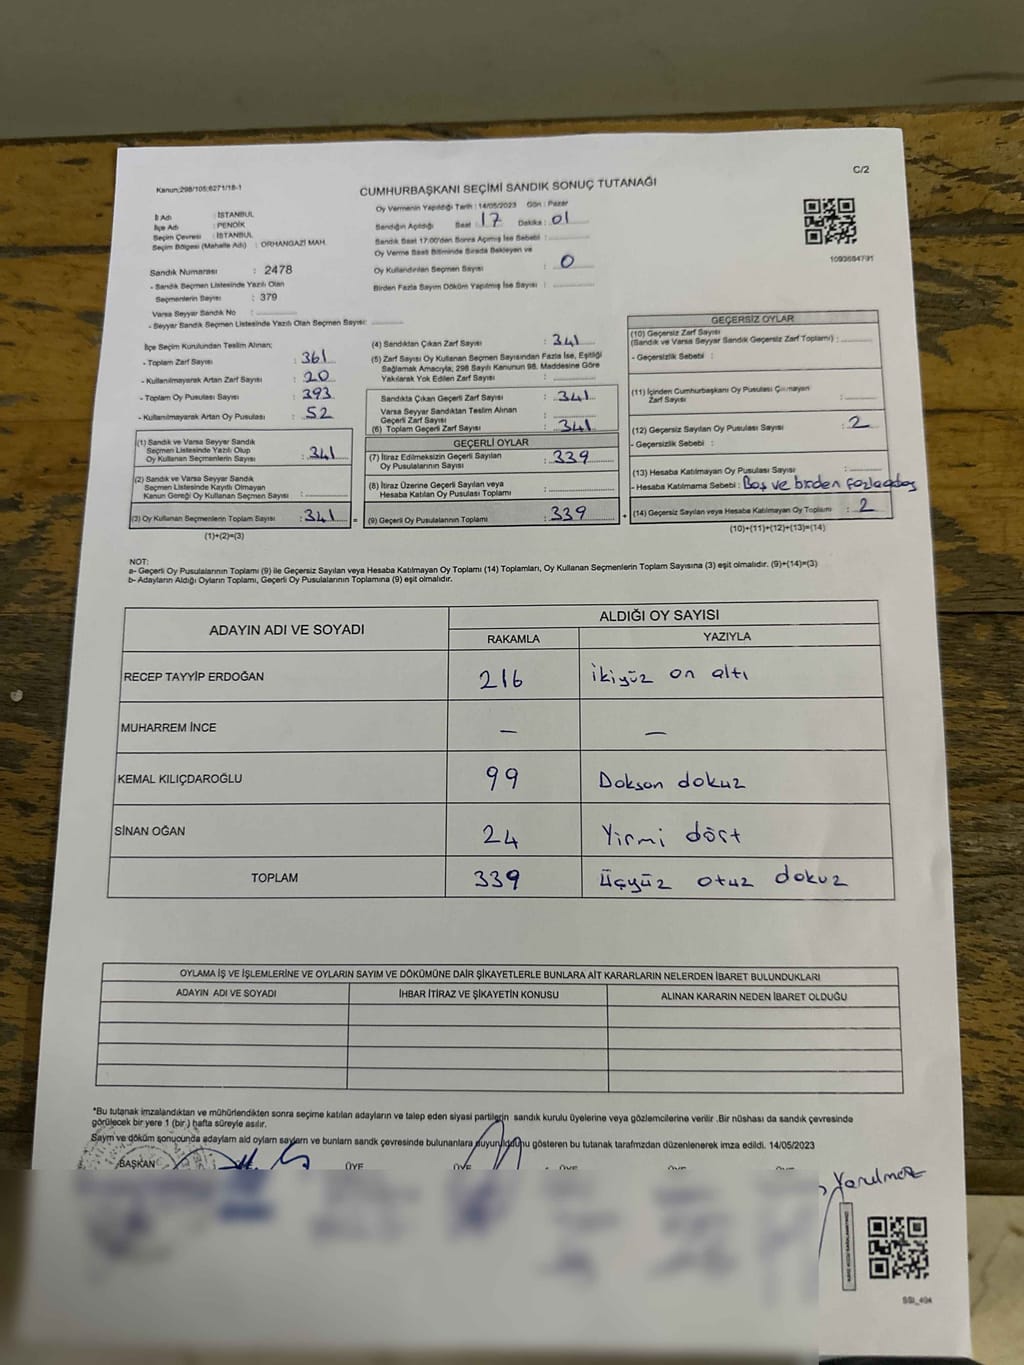 C/2
Kanun;298/105;6271/18-1
CUMHURBAŞKANI SEÇİMİ SANDIK SONUÇ TUTANAĞI
İl Adı : İSTANBUL
İlçe Adı : PENDİK
Seçim Çevresi : İSTANBUL
Seçim Bölgesi (Mahalle Adı) : ORHANGAZİ MAH.
Oy Vermenin Yapıldığı Tarih : 14/05/2023 Gün : Pazar
Sandığın Açıldığı Saat 17 Dakika : 01
Sandık Saat 17:00'den Sonra Açılmış İse Sebebi :
Oy Verme Saati Bitiminde Sırada Bekleyen ve
Oy Kullandırılan Seçmen Sayısı : 0
Birden Fazla Sayım Döküm Yapılmış İse Sayısı :
1093684791
Sandık Numarası : 2478
- Sandık Seçmen Listesinde Yazılı Olan
Seçmenlerin Sayısı : 379
Varsa Seyyar Sandık No :
- Seyyar Sandık Seçmen Listesinde Yazılı Olan Seçmen Sayısı:
İlçe Seçim Kurulundan Teslim Alınan;
- Toplam Zarf Sayısı : 361
- Kullanılmayarak Artan Zarf Sayısı : 20
- Toplam Oy Pusulası Sayısı : 393
- Kullanılmayarak Artan Oy Pusulası : 52
(1) Sandık ve Varsa Seyyar Sandık
Seçmen Listesinde Yazılı Olup
Oy Kullanan Seçmenlerin Sayısı : 341
(2) Sandık ve Varsa Seyyar Sandık
Seçmen Listesinde Yazılı Olmayan
Kanun Gereği Oy Kullanan Seçmen Sayısı :
(3) Oy Kullanan Seçmenlerin Toplam Sayısı : 341 =
(1)+(2)=(3)
(4) Sandıktan Çıkan Zarf Sayısı : 341
(5) Zarf Sayısı Oy Kullanan Seçmen Sayısından Fazla İse, Eşitliği
Sağlamak Amacıyla, 298 Sayılı Kanunun 98. Maddesine Göre
Yakılarak Yok Edilen Zarf Sayısı :
Sandıkta Çıkan Geçerli Zarf Sayısı : 341
Varsa Seyyar Sandıktan Teslim Alınan
Geçerli Zarf Sayısı :
(6) Toplam Geçerli Zarf Sayısı : 341
GEÇERLİ OYLAR
(7) İtiraz Edilmeksizin Geçerli Sayılan
Oy Pusulalarının Sayısı : 339
(8) İtiraz Üzerine Geçerli Sayılan veya
Hesaba Katılan Oy Pusulası Toplamı :
(9) Geçerli Oy Pusulalarının Toplamı : 339 +
GEÇERSİZ OYLAR
(10) Geçersiz Zarf Sayısı
(Sandık ve Varsa Seyyar Sandık Geçersiz Zarf Toplamı) :
- Geçersizlik Sebebi :
(11) İçinden Cumhurbaşkanı Oy Pusulası Çıkmayan
Zarf Sayısı :
(12) Geçersiz Sayılan Oy Pusulası Sayısı : 2
- Geçersizlik Sebebi :
(13) Hesaba Katılmayan Oy Pusulası Sayısı :
- Hesaba Katılmama Sebebi : Boş ve birden
(14) Geçersiz Sayılan veya Hesaba Katılmayan Oy Toplamı : 2
(10)+(11)+(12)+(13)=(14)
NOT:
a- Geçerli Oy Pusulalarının Toplamı (9) ile Geçersiz Sayılan veya Hesaba Katılmayan Oy Toplamı (14) Toplamları, Oy Kullanan Seçmenlerin Toplam Sayısına (3) eşit olmalıdır. (9)+(14)=(3)
b- Adayların Aldığı Oyların Toplamı, Geçerli Oy Pusulalarının Toplamına (9) eşit olmalıdır.
ADAYIN ADI VE SOYADI ALDIĞI OY SAYISI
RAKAMLA YAZIYLA
RECEP TAYYİP ERDOĞAN 216 ikiyüz on altı
MUHARREM İNCE — —
KEMAL KILIÇDAROĞLU 99 Doksan dokuz
SİNAN OĞAN 24 Yirmi dört
TOPLAM 339 Üçyüz otuz dokuz
OYLAMA İŞ VE İŞLEMLERİNE VE OYLARIN SAYIM VE DÖKÜMÜNE DAİR ŞİKAYETLERLE BUNLARA AİT KARARLARIN NELERDEN İBARET BULUNDUKLARI
ADAYIN ADI VE SOYADI İHBAR İTİRAZ VE ŞİKAYETİN KONUSU ALINAN KARARIN NEDEN İBARET OLDUĞU
*Bu tutanak imzalandıktan ve mühürlendikten sonra seçime katılan adayların ve talep eden siyasi partilerin sandık kurulu üyelerine veya gözlemcilerine verilir .Bir nüshası da sandık çevresinde
görülecek bir yere 1 (bir ) hafta süreyle asılır.
Sayım ve döküm sonucunda adayların aid oyların sayıların ve bunların sandık çevresinde bulunanlara duyurulduğunu gösteren bu tutanak tarafımızdan düzenlenerek imza edildi. 14/05/2023
BAŞKAN ÜYE ÜYE ÜYE
SSI_404